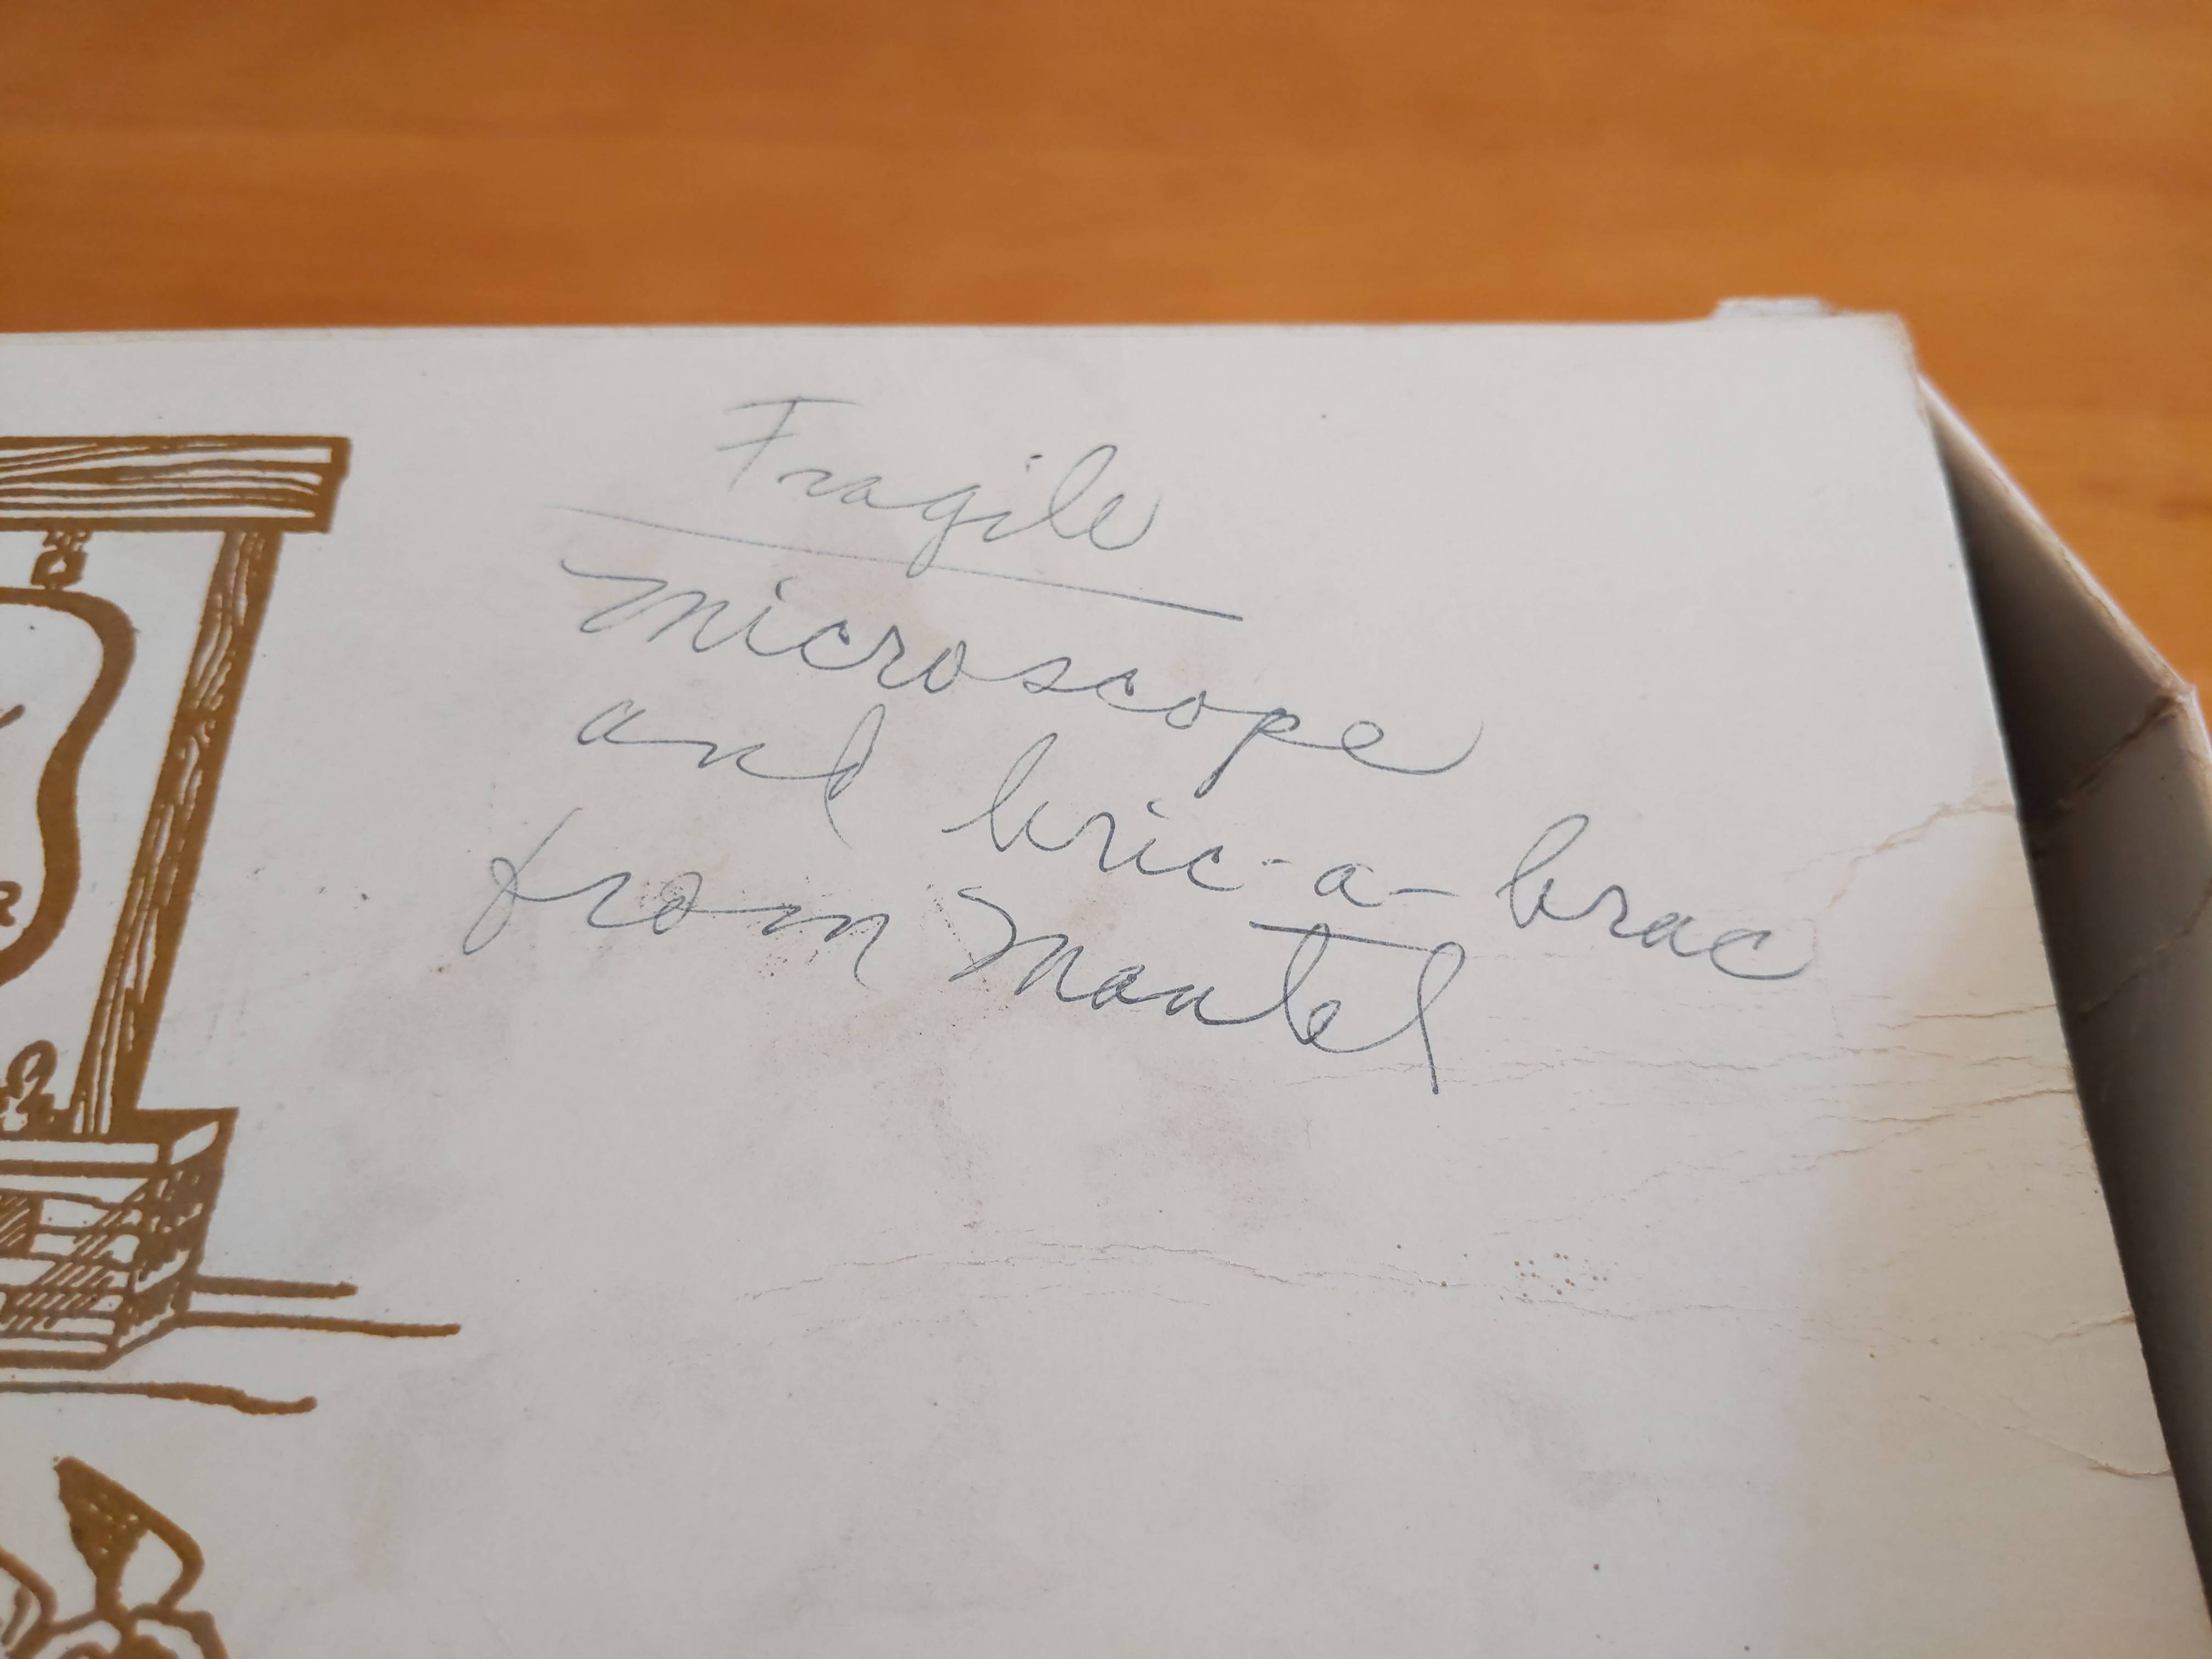 Fragile
Microscope
and bric-a-brac
from Mantel